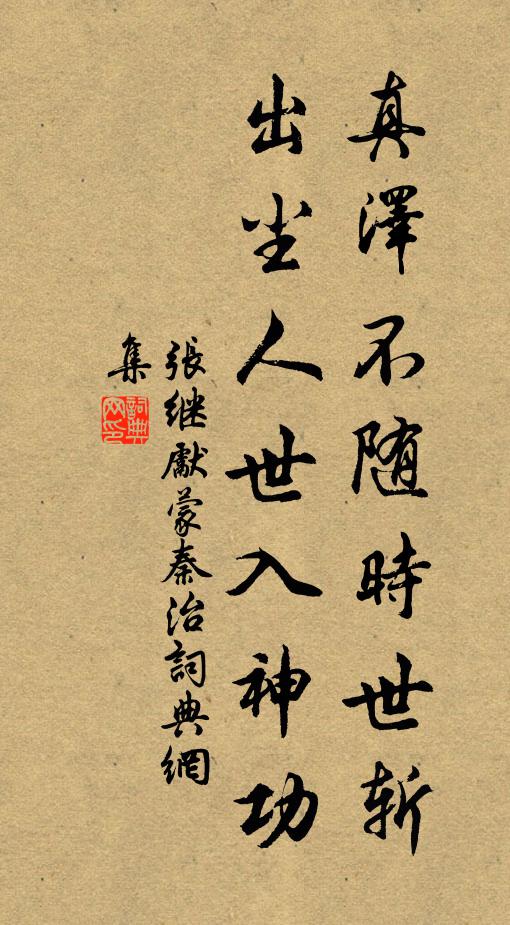 真澤不随時世斩
出尘人世入神功
張继獻蒙秦治詞典網
集
詞典网印